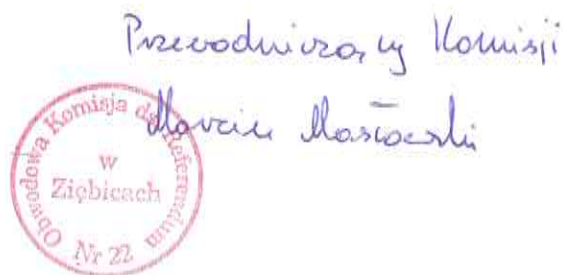 Przewodniczący Komisji
Marcin
Obwodowa Komisja ds. Referendum
w
Ziębicach
Nr 22